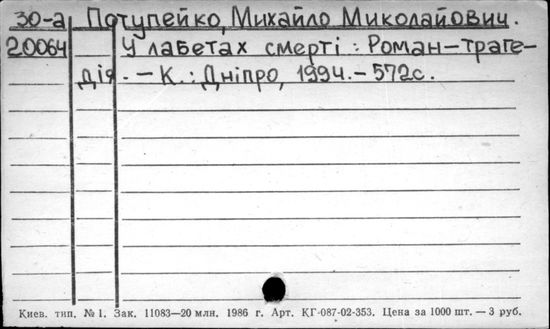 30-а Потупейко, Михайло Миколайович.
20064 У лабетах смерті : Роман-траге-
дія. - К. : Дніпро, 1994. - 572с.
Киев. тип. № 1. Зак. 11083—20 млн. 1986 г. Арт. КГ-087-02-353. Цена за 1000 шт. — 3 руб.